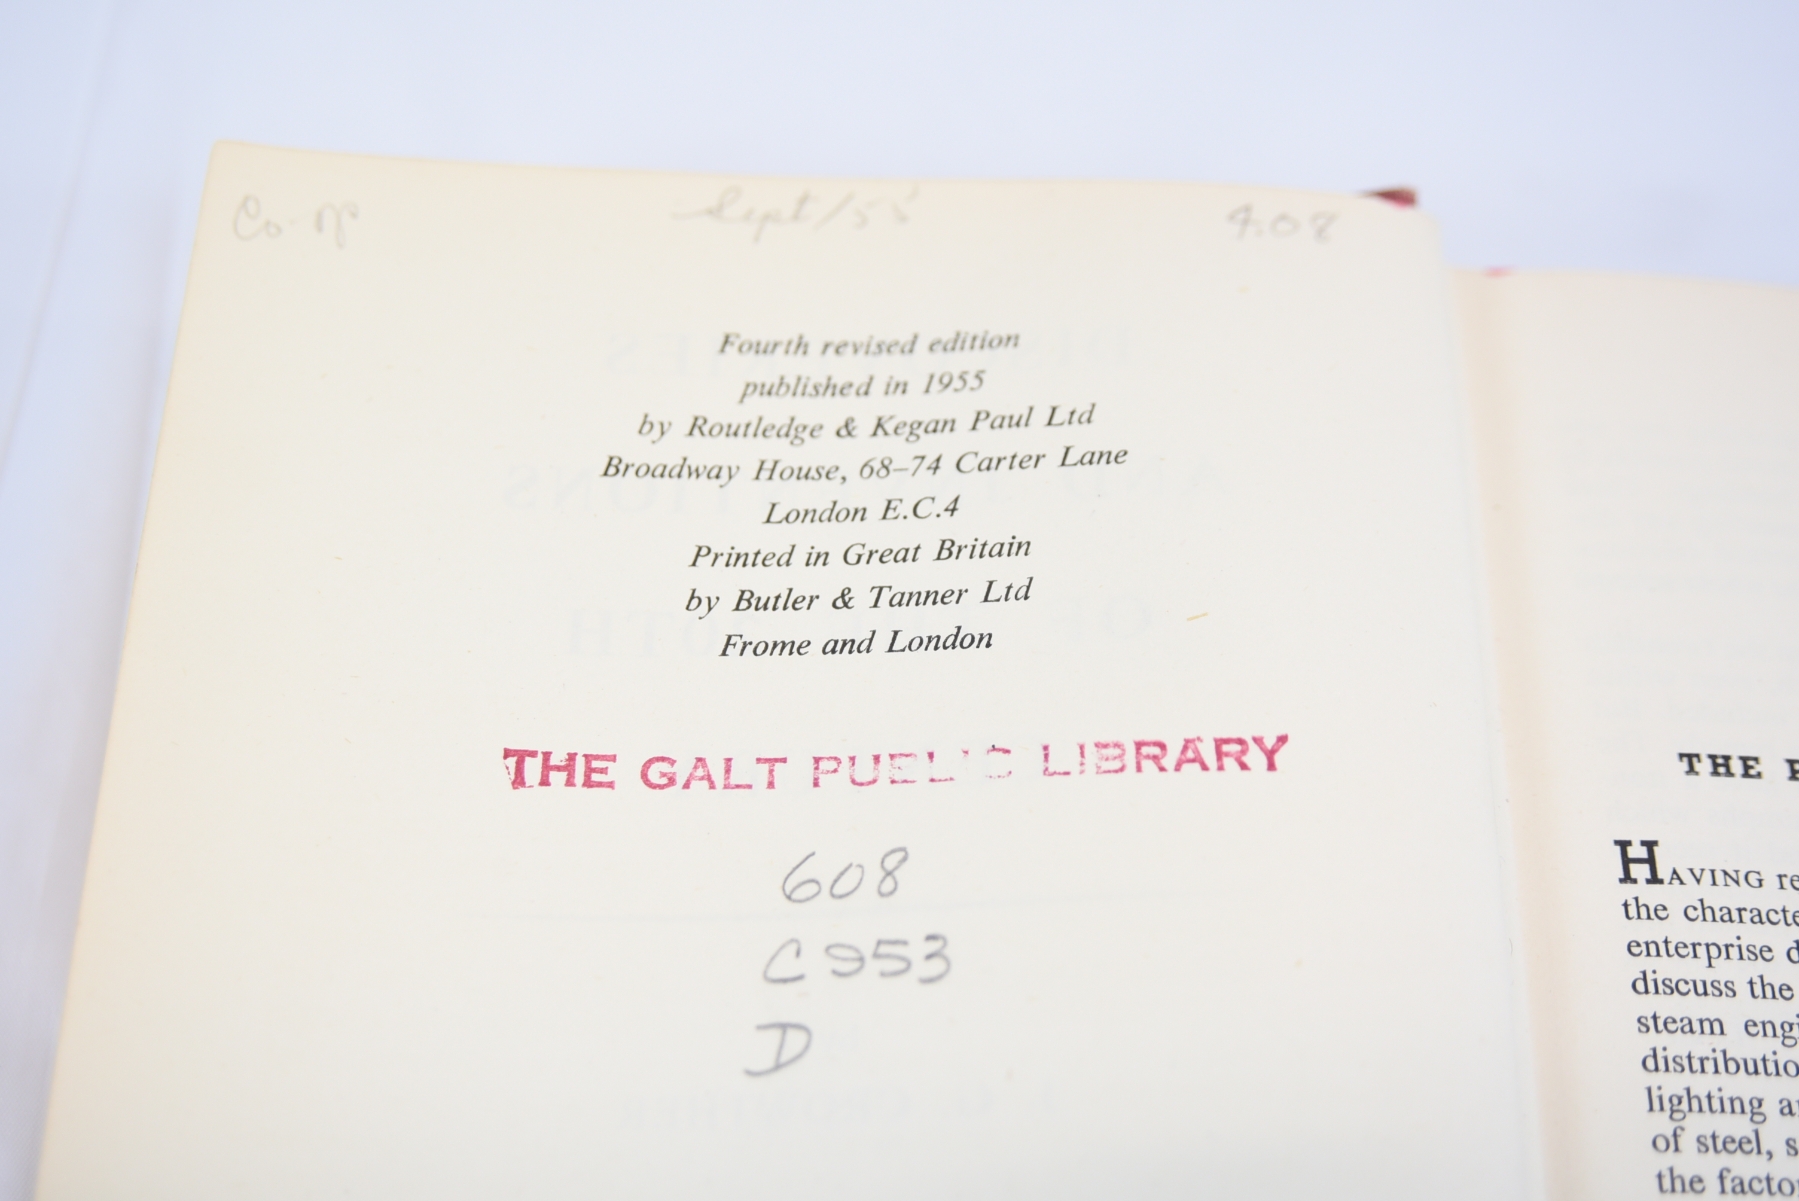 Co-op Sept/55 4.08
Fourth revised edition
published in 1955
by Routledge & Kegan Paul Ltd
Broadway House, 68–74 Carter Lane
London E.C.4
Printed in Great Britain
by Butler & Tanner Ltd
Frome and London
THE GALT PUBLIC LIBRARY
608
C953
D
THE
HAVING
the
enterprise
discuss the
steam
lighting
of steel,
the